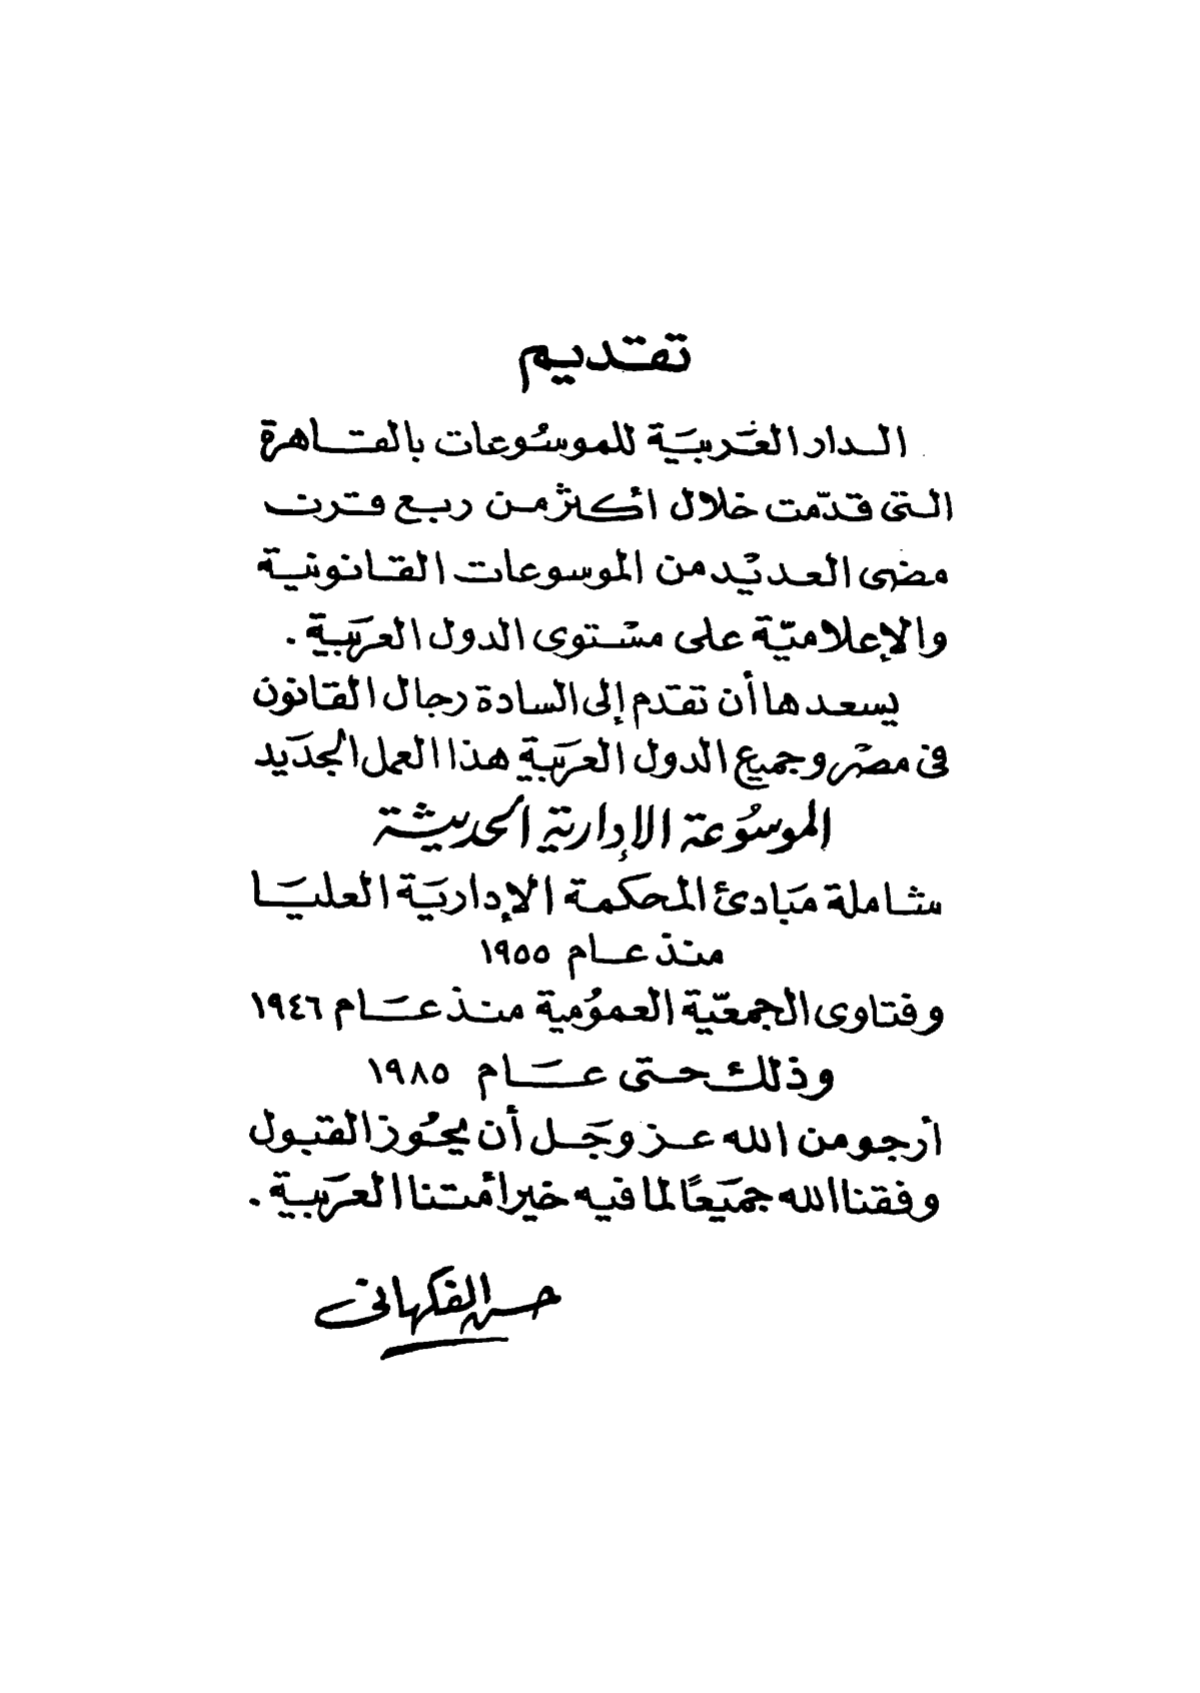 تقديم
الدار العربية للموسُوعات بالقاهرة
التى قدّمت خلال أكثر من ربع قرن
مضى العديد من الموسوعات القانونية
والإعلاميّة على مستوى الدول العربَية .
يسعدها أن تقدم إلى السادة رجال القانون
فى مصر وجميع الدول العربَية هذا العمل الجدَيد
الموسُوعة الإدارية الحديثة
شاملة مَبادئ المحكمة الإداريَة العليَا
منذ عام ١٩٥٥
وفتاوى الجمعيّة العموُمية منذ عَام ١٩٤٦
وذلك حتى عَام ١٩٨٥
أرجو من الله عز وجَل أن يحُوز القبول
وفقنا الله جمَيعًا لما فيه خير أمتنا العرَبية .
حسن الفكهانى